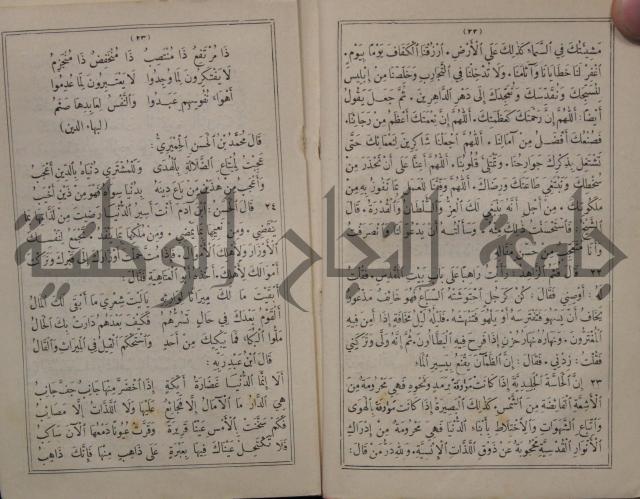 (٢٢)
مشيئتك في السماء كذلك على الأرض. ارزقنا الكفاف يوما بيوم.
اغفر لنا خطايانا وآثامنا. ولا تدخلنا في التجارب وخلصنا من إبليس
لنسبحك ونقدسك ونمجدك إلى دهر الداهرين. ثم جعل يقول
أيضا: اللهم إن رحمتك كعظمتك. اللهم إن نعمتك أعظم من رجائنا.
فصنعك أفضل من آمالنا. اللهم اجعلنا شاكرين لنعمائك حتى
تشتغل بذكرك جوارحنا. وتمتلئ قلوبنا. اللهم أعنا على أن نحذر من
سخطك ونبتغي طاعتك ورضاك. اللهم وفقنا للعمل بما نفوز به من
ملكوتك. من أجل أنه ينبغي لك العز والسلطان والقدرة. قال
الشيخ: فاستحسنت ذلك منه. وسألته أن يدعو لنا وانصرفت
وأنا متعجب من مقاله
٢٢ قال الزاهد: رأيت راهبا على باب بيت المقدس. فقلت
له: أوصني فقال: كن كرجل احتوشته السباع فهو خائف مذعور
يخاف أن يسهو فتفترسه أو يلهو فتنهشه. فليله ليل مخافة إذا أمن فيه
المغترون. ونهاره نهار حزن إذا فرح فيه البطالون. ثم إنه ولى وتركني
فقلت: زدني. فقال: إن الظمآن يقنع بيسير الماء
٢٣ إن الحاسة الجليدية إذا كانت مؤوفة برمد ونحوه فهي محرومة من
الأشعة الفائضة من الشمس. كذلك البصيرة إذا كانت مؤوفة بالهوى
واتباع الشهوات والاختلاط بأبناء الدنيا فهي محرومة من إدراك
الأنوار القدسية محجوبة عن ذوق اللذات الإنسية. ولله در من قال:
(٢٣)
ذا مرتفع ذا منتصب ذا منخفض ذا منجزم
لا يفتكرون لما وجدوا لا يعتبرون لما عدموا
أهواء نفوسهم عبدوا والنفس لعابدها صنم
(لبهاء الدين)
قال محمد بن الحسن الحميري:
عجبت لمبتاع الضلالة بالهدى وللمشتري دنياه بالدين أعجب
وأعجب من هذين من باع دينه بدنيا سواه فهو من ذين أخيب
٢٤ قال الحسن: ابن آدم أنت أسير الدنيا رضيت من لذاتها بما
ينقضي. ومن نعيمها بما يمضي. ومن ملكها بما ينفد. تجمع لنفسك
الأوزار ولأهلك الأموال. فإذا مت حملت أوزارك إلى قبرك وتركت
أموالك لأهلك. أخذه أبو العتاهية فقال:
أبقيت مالك ميراثا لوارثه يا ليت شعري ما أبقى لك المال
القوم بعدك في حال تسرهم فكيف بعدهم دارت بك الحال
ملوا البكاء فما يبكيك من أحد واستحكم القيل في الميراث والقال
قال ابن عبد ربه:
ألا إنما الدنيا غضارة أيكة إذا اخضر منها جانب جف جانب
هي الدار ما الآمال إلا فجائع عليها ولا اللذات إلا مصائب
فكم سخنت بالأمس عينا قريرة وقرت عيونا دمعها الآن ساكب
فلا تكتحل عيناك فيها بعبرة على ذاهب منها فإنك ذاهب
جامعة النجاح الوطنية